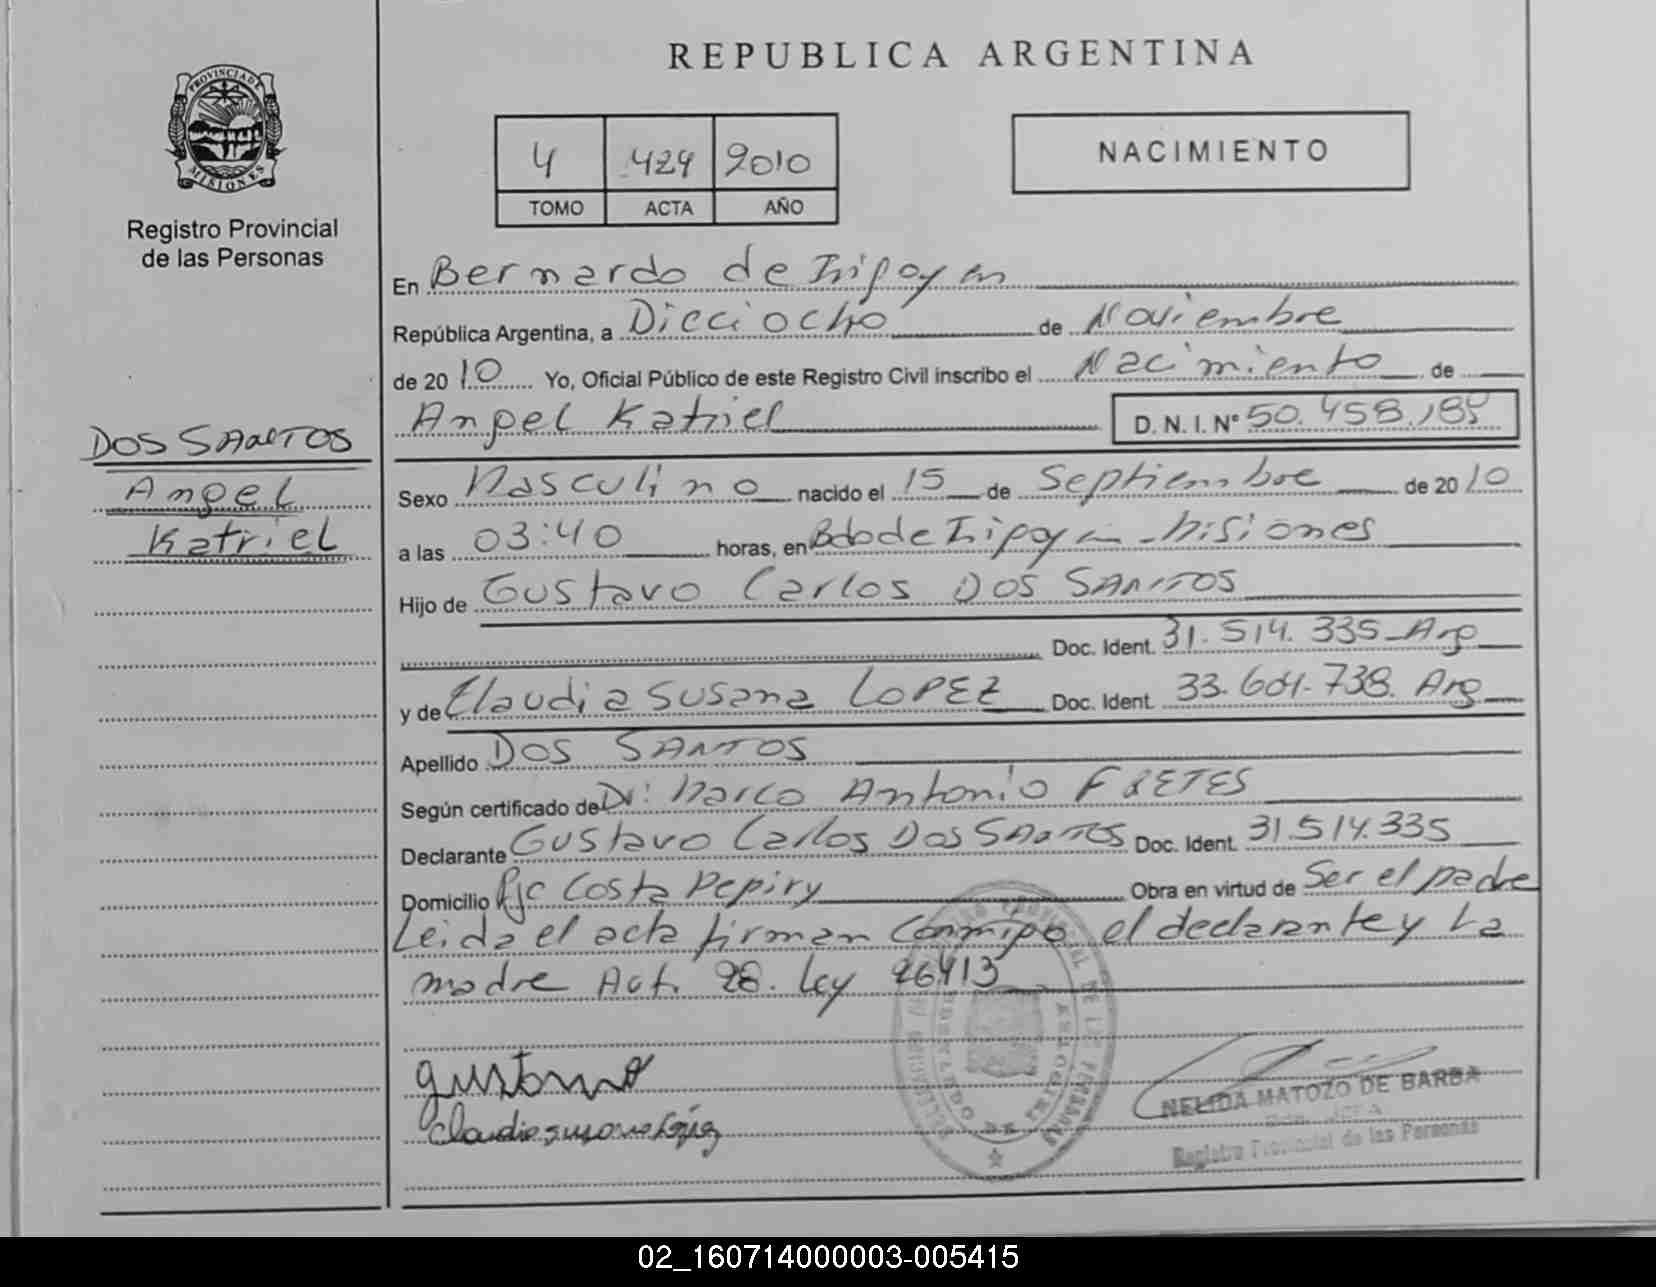 REPUBLICA ARGENTINA
PROVINCIA DE
MISIONES
Registro Provincial
de las Personas
4 424 2010
TOMO ACTA AÑO
NACIMIENTO
DOS SANTOS
Angel
Katriel
En Bernardo de Irigoyen
República Argentina, a Dieciocho de Noviembre
de 2010 Yo, Oficial Público de este Registro Civil inscribo el Nacimiento de
Angel Katriel D. N. I. Nº 50.458.185
Sexo Masculino nacido el 15 de Septiembre de 2010
a las 03:40 horas, en Bdo de Irigoyen - Misiones
Hijo de Gustavo Carlos DOS SANTOS
Doc. Ident. 31.514.335 Arg
y de Claudia Susana LOPEZ Doc. Ident. Arg
Apellido DOS SANTOS
Según certificado de Dr: Marco Antonio FRETES
Declarante Gustavo Carlos Dos SANTOS Doc. Ident. 31.514.335
Domicilio Pje Costa Pepiry Obra en virtud de Ser el padre
Leida el acta firman Conmigo el declarante y La
madre Art. 28. Ley 26413
gustavo
Claudia susana López
NELIDA MATOZO DE BARBA
JEFA
Registro Provincial de las Personas
02_160714000003-005415